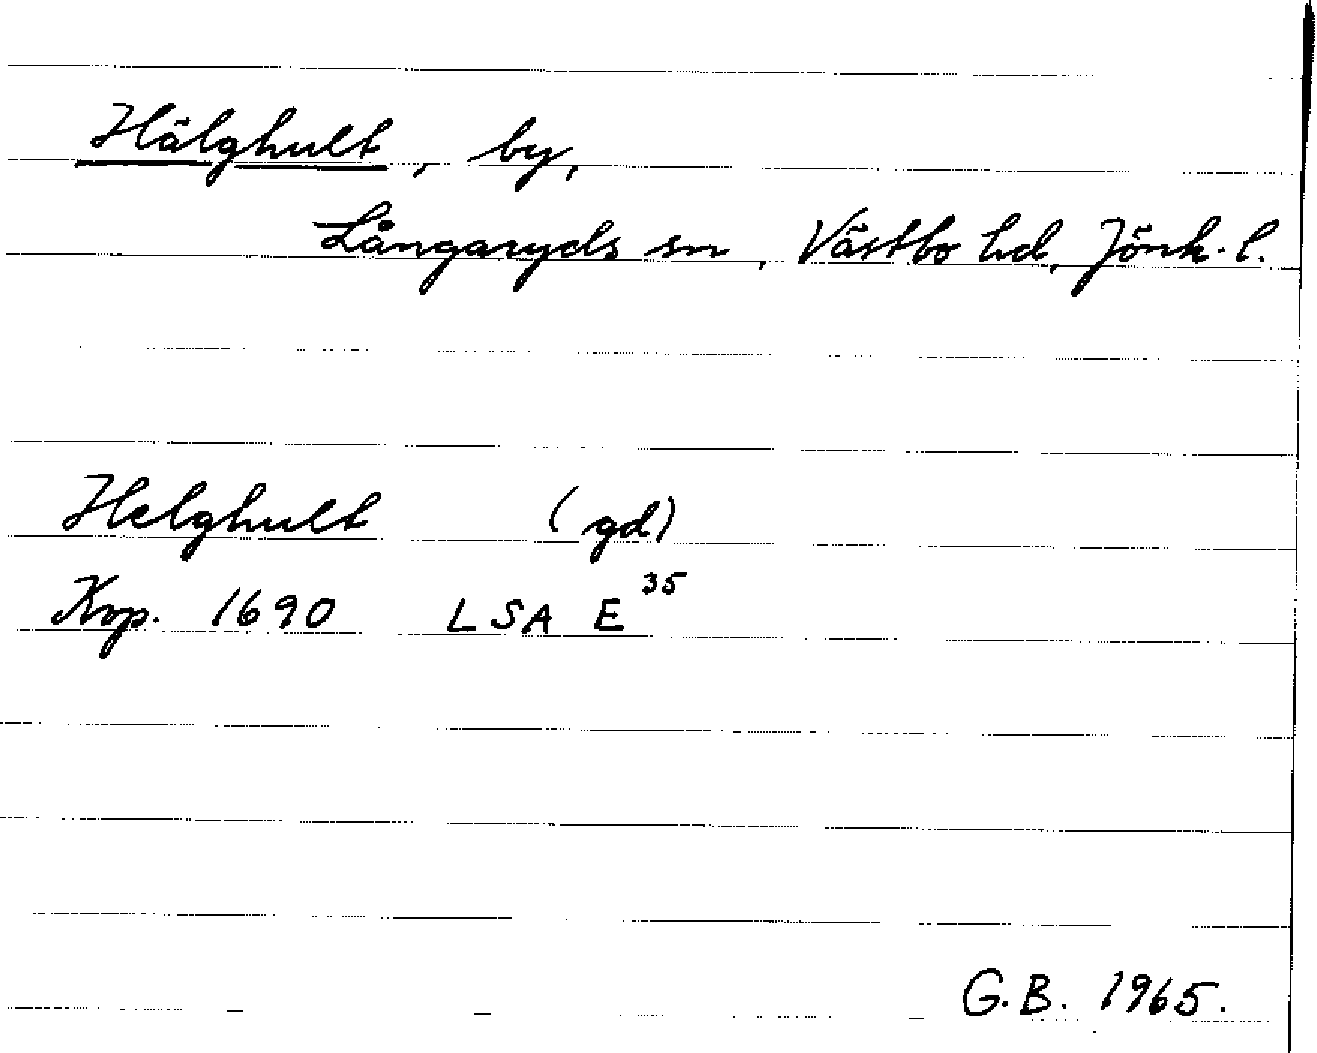 Hälghult, by,
Långaryds sn, Västbo hd, Jönk. l.
Helghult (gd)
Kop. 1690 LSA E³⁵
G.B. 1965.